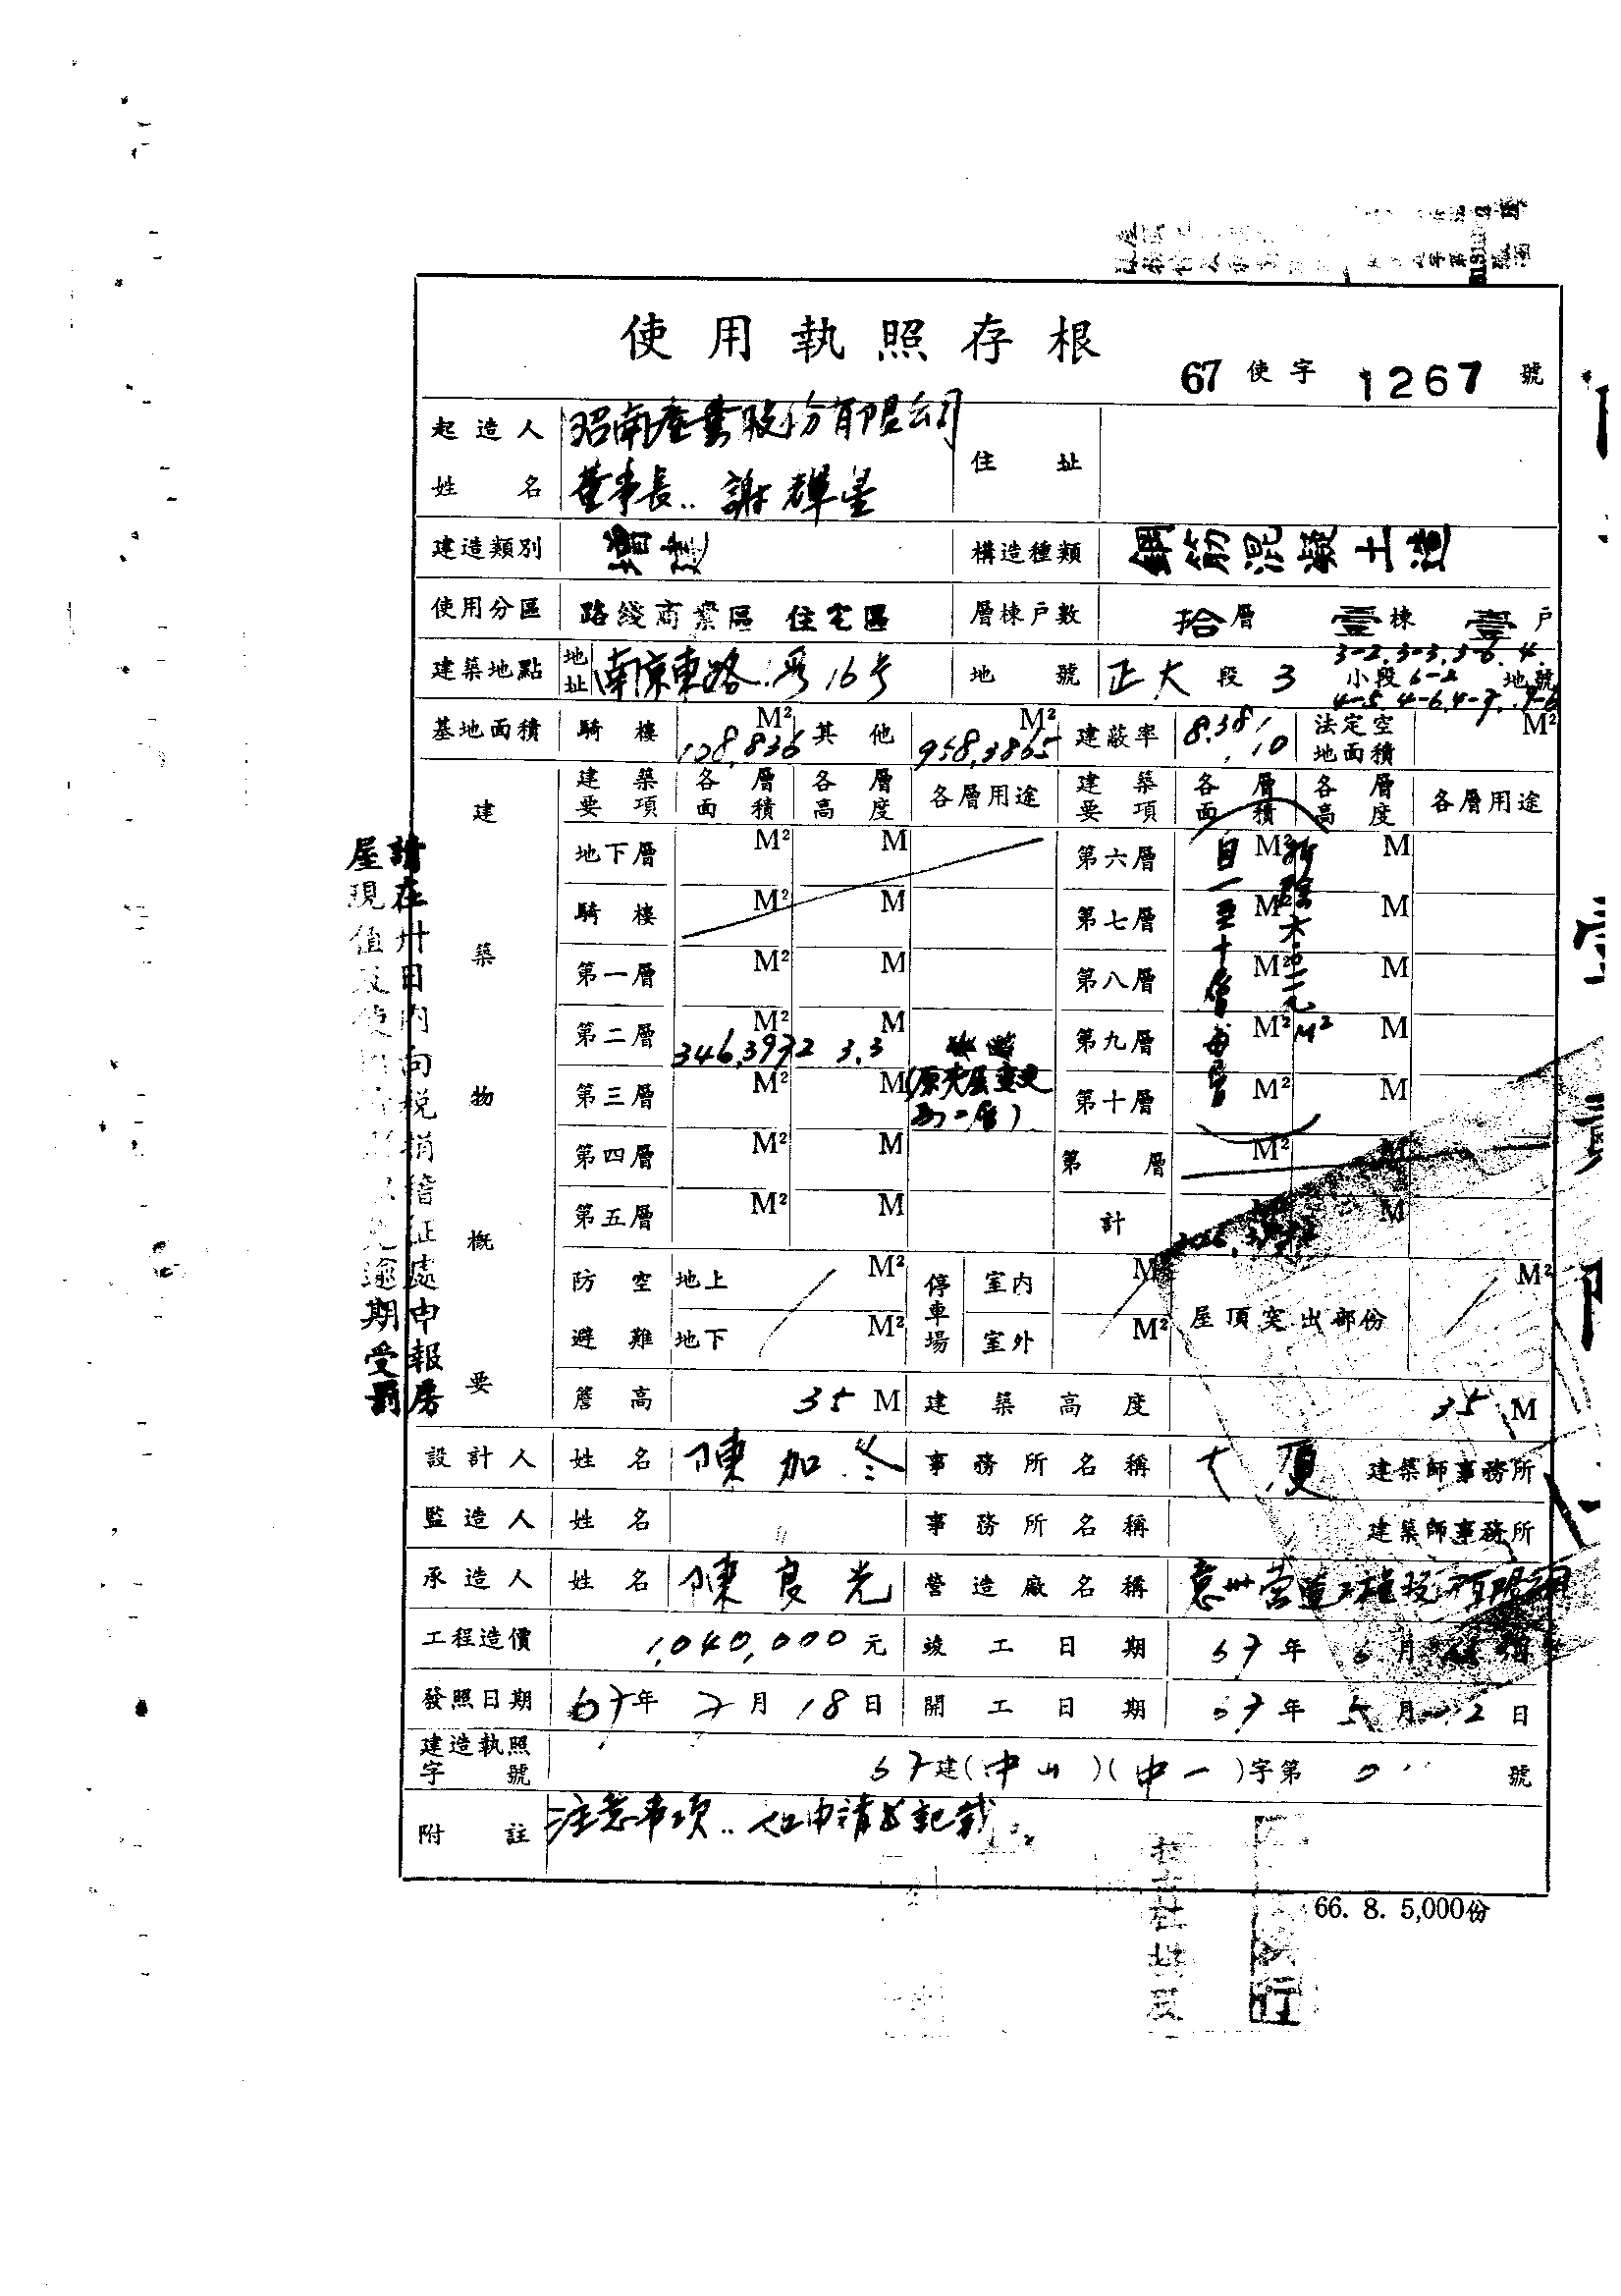 使用執照存根
67 使字 1267 號
起造人姓名 昭南產業股份有限公司 董事長..謝輝星 住址
建造類別 增建 構造種類 鋼筋混凝土造
使用分區 路綫商業區 住宅區 層棟戶數 拾層 壹棟 壹戶
建築地點 地址 南京東路 16号 地號 正大段 3 小段 地號
3-2.3-3.3-6.4.
6-2
4-5.4-6.4-7.
基地面積 騎樓 128.836 M² 其他 958.3865 M² 建蔽率 8.381/10 法定空地面積 M²
建築物概要
建築要項 各層面積 各層高度 各層用途 建築要項 各層面積 各層高度 各層用途
地下層 M² M 第六層 M² M
騎樓 M² M 第七層 M² M
第一層 M² M 第八層 M² M
第二層 346.3972 M² 3.3 M 第九層 M² M
(原夾層變更為二層)
第三層 M² M 第十層 M² M
第四層 M² M 第 層 M² M
第五層 M² M 計 M
自一至十層每層
拆除
M²
防空避難 地上 M² 停車場 室內 M² 屋頂突出部份 M²
地下 M² 室外 M²
簷高 35 M 建築高度 35 M
設計人 姓名 陳加 事務所名稱 大厦 建築師事務所
監造人 姓名 事務所名稱 建築師事務所
承造人 姓名 陳良光 營造廠名稱
工程造價 1,040,000元 竣工日期 67年 6月 日
發照日期 67年 7月 18日 開工日期 67年 5月 2日
建造執照字號 67建(中山)(中一)字第 號
附註 注意事項..如申請書記載
請在卅日內向稅捐稽征處申報房
屋現值及使 逾期受罰
66. 8. 5,000份